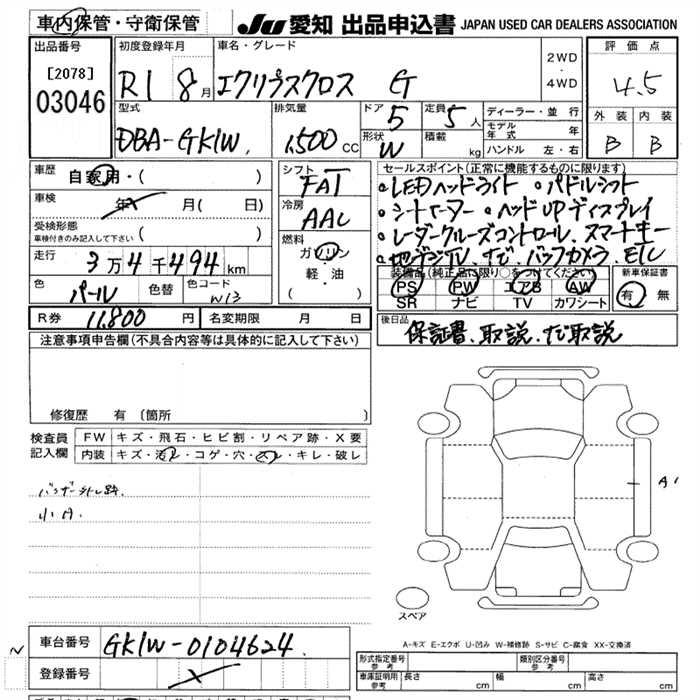 車内保管・守衛保管
JU 愛知 出品申込書 JAPAN USED CAR DEALERS ASSOCIATION
出品番号 初度登録年月 車名・グレード 評価点
[2078]
03046
R1 8月 エクリプスクロス G
2WD
・
4WD
4.5
型式 排気量 ドア 5 定員 5人 ディーラー・並行 外装 内装
DBA-GK1W 1,500cc 形状 W 積載 kg モデル年式 年 B B
ハンドル 左・右
車歴 自家用・( ) シフト セールスポイント(正常に機能するものに限ります)
FAT
・LEDヘッドライト ・パドルシフト
車検 年 月( 日) 冷房
AAC
・シートヒーター ・ヘッドUPディスプレイ
受検形態
車検付きのみ記入して下さい ( )
・レーダークルーズコントロール、スマートキー
走行 3万4千494km 燃料
ガソリン
軽・油
( )
・地デジTV、ナビ、バックカメラ、ETC
装備品(純正品に限り○をつけてください) 新車保証書
PS PW エアB AW 有 無
SR ナビ TV カワシート
色 パール 色替 色コード W13
R券 11,800円 名変期限 月 日
後日品
保証書、取説、ナビ取説
注意事項申告欄(不具合内容等は具体的に記入して下さい)
修復歴 有 〔箇所 〕
検査員 FW キズ・飛石・ヒビ割・リペア跡・X要
記入欄 内装 キズ・汚レ・コゲ・穴・スレ・キレ・破レ
バイザー外し跡
小A
A1
スペア
A-キズ E-エクボ U-凹み W-補修跡 S-サビ C-腐食 XX-交換済
車台番号 GK1W-0104624
形式指定番号 参考 類別区分番号 参考
登録番号
車庫証明用 参考 長さ cm 幅 cm 高さ cm